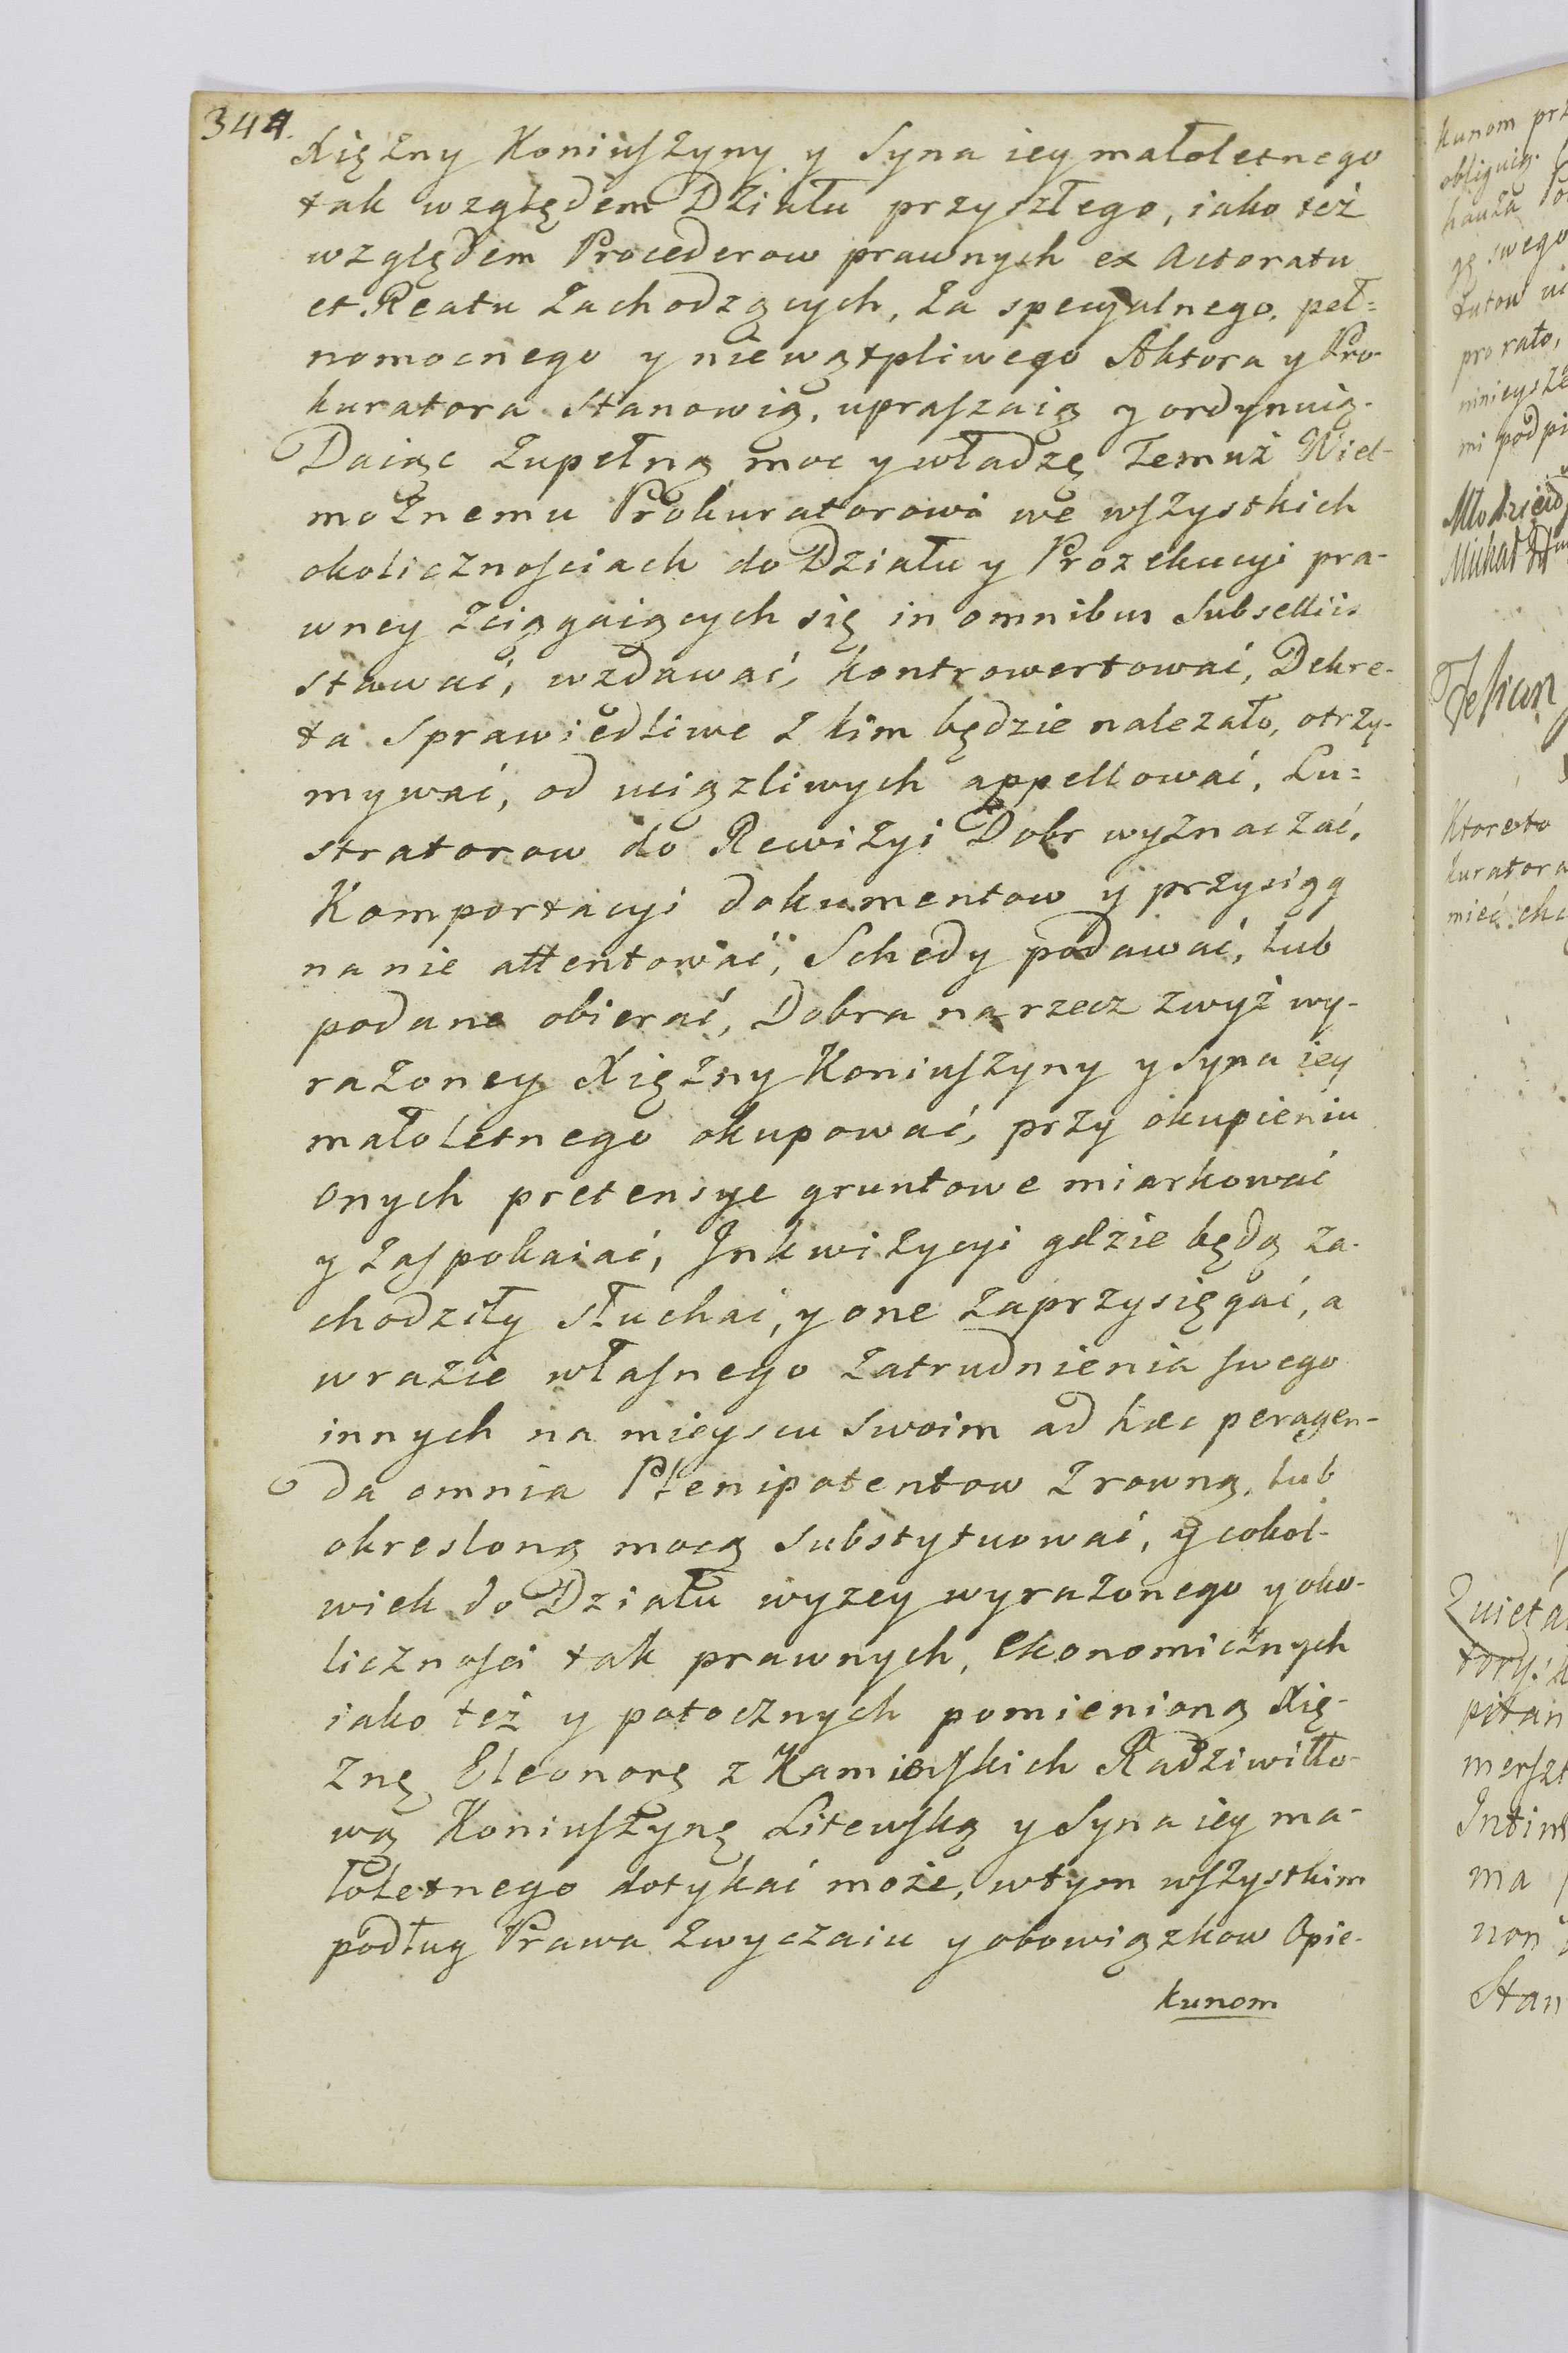 344.
Xiężny Koniuszyny y Syna iey małoletnego
tak względem Działu przyszłego, iako też
względem Procederow prawnych ex Actoratu
et Reatu zachodzących, za specyalnego, peł=
nomocnego y niewątpliwego Aktora y Pro-
kuratora Stanowią, upraszaią y ordynuią.
Daiąc zupełną moc y władzę temuż Wiel-
możnemu Prokuratorowi we wszystkich
okolicznościach do Działu y Prozekucyi pra-
wney ściągaiących się in omnibus Subselliis
stawać, wzdawać, kontrowertować, Dekre-
ta Sprawiedliwe z kim będzie nalezało, otrzy-
mywać, od uciązliwych appellować, Lu=
stratorow do Rewizyi Dobr wyznaczać,
Komportacyi dokumentow y przysiąg
na nie attentować, Schedy podawać, lub
podane obierać, Dobra na rzecz zwyż wy-
rażoney Xiężny Koniuszyny y Syna iey
małoletnego okupować, przy okupieniu
onych pretensye gruntowe miarkować
y zaspokaiać, Inkwizycyi gdzie będą za-
chodziły słuchać, y one zaprzysięgać, a
w razie własnego zatrudnienia swego
innych na mieyscu swoim ad hæc peragen-
da omnia Plenipotentow z rowną, lub
okresloną mocą substytuować, y cokol-
wiek do Działu wyzey wyrażonego y oko-
liczności tak prawnych, ekonomicznych
iako też y potocznych pomienioną Xię-
żnę Eleonorę z Kamieńskich Radziwiłło-
wą Koniuszynę Litewską y Syna iey ma-
łoletnego dotykać może, w tym wszystkim
podług Prawa zwyczaiu y obowiązkow Opie-
kunom
kunom
swego
pro rato,
Michał
kuratora
mieć
Stan